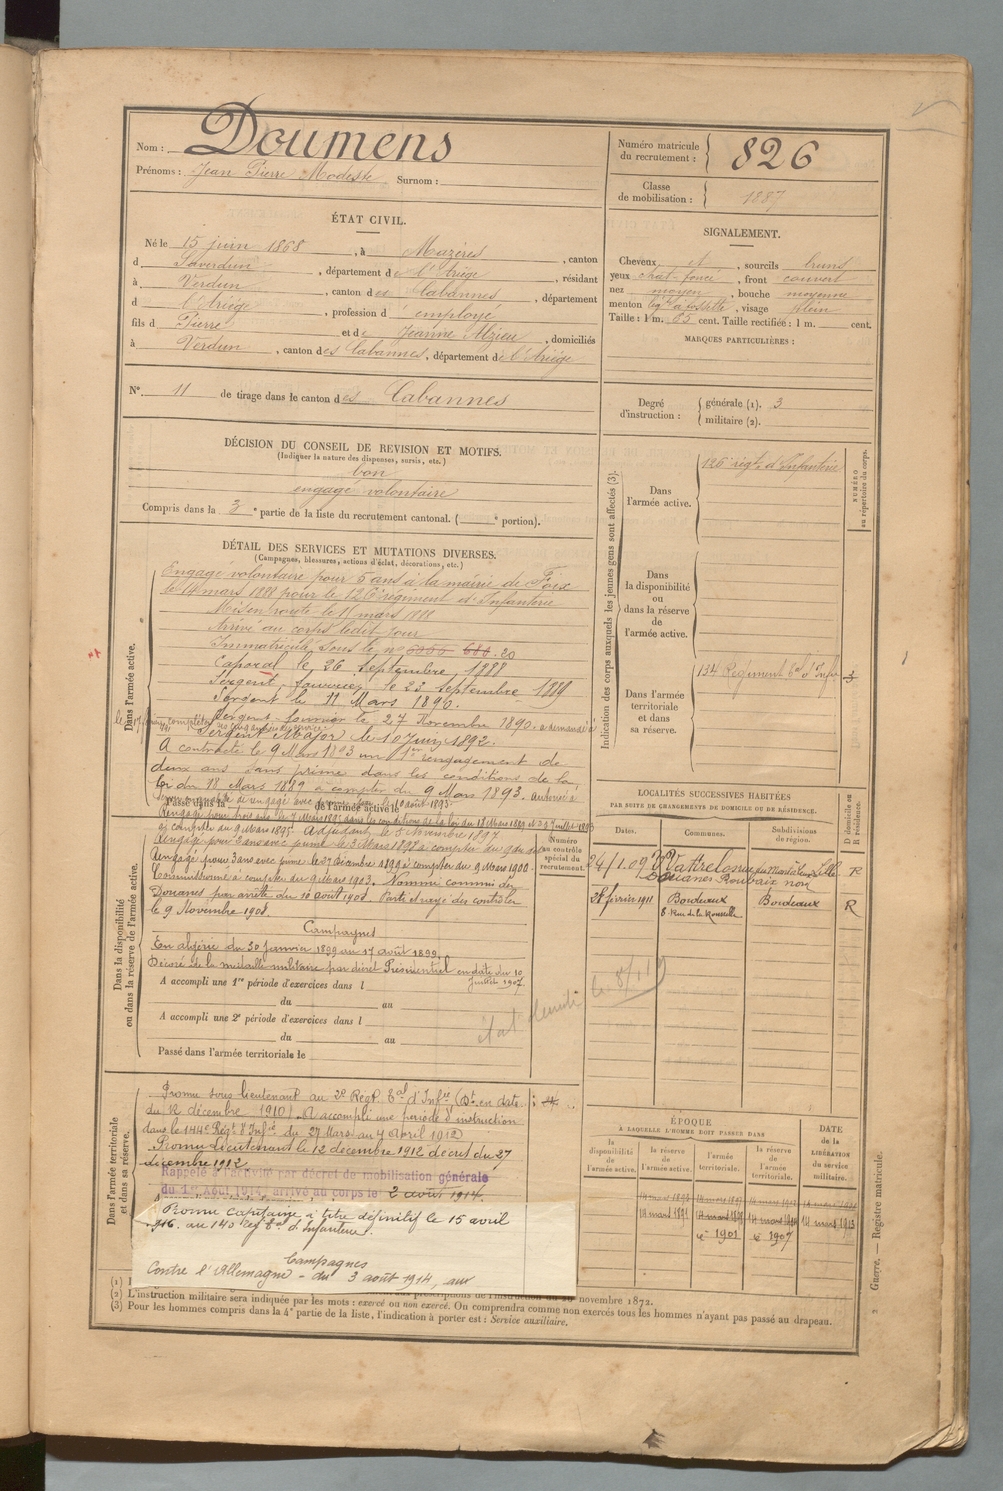 Nom : Doumens
Prénoms : Jean Pierre Modeste Surnom :
Numéro matricule du recrutement : 826
Classe de mobilisation : 1887
ÉTAT CIVIL.
Né le 15 juin 1868, à Mazères, canton
d Saverdun, département de l'Ariège, résidant
à Verdun, canton des Cabannes, département
d l'Ariège, profession d' employé
fils d Pierre et de Jeanne, domiciliés
à Verdun, canton des Cabannes, département de l'Ariège
SIGNALEMENT.
Cheveux et, sourcils bruns
yeux chat. foncé, front couvert
nez moyen, bouche moyenne
menton à fossette, visage plein
Taille : 1 m. 65 cent. Taille rectifiée : 1 m. cent.
MARQUES PARTICULIÈRES :
N° 11 de tirage dans le canton des Cabannes
Degré d'instruction : générale (1). 3
militaire (2).
DÉCISION DU CONSEIL DE REVISION ET MOTIFS.
(Indiquer la nature des dispenses, sursis, etc.)
bon
engagé volontaire
Compris dans la 3e partie de la liste du recrutement cantonal. ( e portion).
DÉTAIL DES SERVICES ET MUTATIONS DIVERSES.
(Campagnes, blessures, actions d'éclat, décorations, etc.)
Dans l'armée active.
Engagé volontaire pour 5 ans à la mairie de Foix
le mars 1888 pour le 126e régiment d'Infanterie
Mis en route le 11 mars 1888
Arrivé au corps ledit jour
Immatriculé sous le n° 20
Caporal le 26 septembre 1888
Sergent fourrier le 23 septembre 1889
Sergent le 11 Mars 1890.
Sergent-fourrier le 27 Novembre 1890.
Sergent Major le 10 Juin 1892.
A contracté le 9 Mars 1893 un 1er rengagement de
deux ans sans prime dans les conditions de la
loi du 18 Mars 1889 à compter du 9 Mars 1893.
Passé dans la de l'armée active le
à compter du 9 Mars 1895. Adjudant le 5 Novembre 1897
Rengagé pour 3 ans avec prime le 27 Décembre 1899 à compter du 9 mars 1900.
Commissionné à compter du 9 Mars 1903. Nommé commis des
Douanes par arrêté du 10 août 1908. rayé des contrôles
le 9 Novembre 1908.
Dans la disponibilité ou dans la réserve de l'armée active.
Numéro au contrôle spécial du recrutement.
Campagnes
En Algérie du 30 Janvier 1899 au 17 août 1899.
Décoré de la médaille militaire par décret Présidentiel en date du 10
Juillet 1907.
A accompli une 1re période d'exercices dans l
du au
A accompli une 2e période d'exercices dans l
du au
Passé dans l'armée territoriale le
Dans l'armée territoriale et dans sa réserve.
Promu sous lieutenant au Régt tal d'Infie (Dt en date
du 12 décembre 1910). A accompli une période d'instruction
dans le 144e Régt d'Infie du 27 Mars au 4 Avril 1912
Promu Lieutenant le 12 décembre 1912 décret du 27
décembre 1912
Rappelé à l'activité par décret de mobilisation générale
du 1er Août 1914, arrivé au corps le 2 août 1914.
Promu Capitaine à titre définitif le 15 avril
1916. au 140 Rég tal d'Infanterie.
Campagnes
Contre l'Allemagne - du 3 août 1914, au
Indication des corps auxquels les jeunes gens sont affectés (3).
NUMÉRO au répertoire du corps.
Dans l'armée active.
126e régt d'Infanterie
Dans la disponibilité ou dans la réserve de l'armée active.
Dans l'armée territoriale et dans sa réserve.
134 Régiment tal d'Infie
LOCALITÉS SUCCESSIVES HABITÉES
PAR SUITE DE CHANGEMENTS DE DOMICILE OU DE RÉSIDENCE.
Dates. Communes. Subdivisions de région. D domicile ou R résidence.
24/1.09 Wattrelos Lille R
Douanes Roubaix
28 février 1911 Bordeaux Bordeaux R
8 Rue de la Rousselle
ÉPOQUE
À LAQUELLE L'HOMME DOIT PASSER DANS
la disponibilité de l'armée active.
la réserve de l'armée active.
l'armée territoriale.
la réserve de l'armée territoriale.
DATE de la LIBÉRATION du service militaire.
1901 1907
(2) L'instruction militaire sera indiquée par les mots : exercé ou non exercé. novembre 1872.
(3) Pour les hommes compris dans la 4e partie de la liste, l'indication à porter est : Service auxiliaire. On comprendra comme non exercés tous les hommes n'ayant pas passé au drapeau.
Guerre. — Registre matricule.